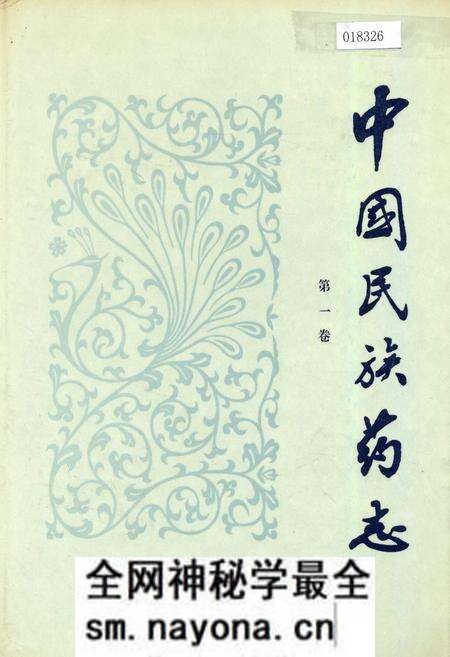 018326
中國民族药志
第一卷
全网神秘学最全
sm.nayona.cn